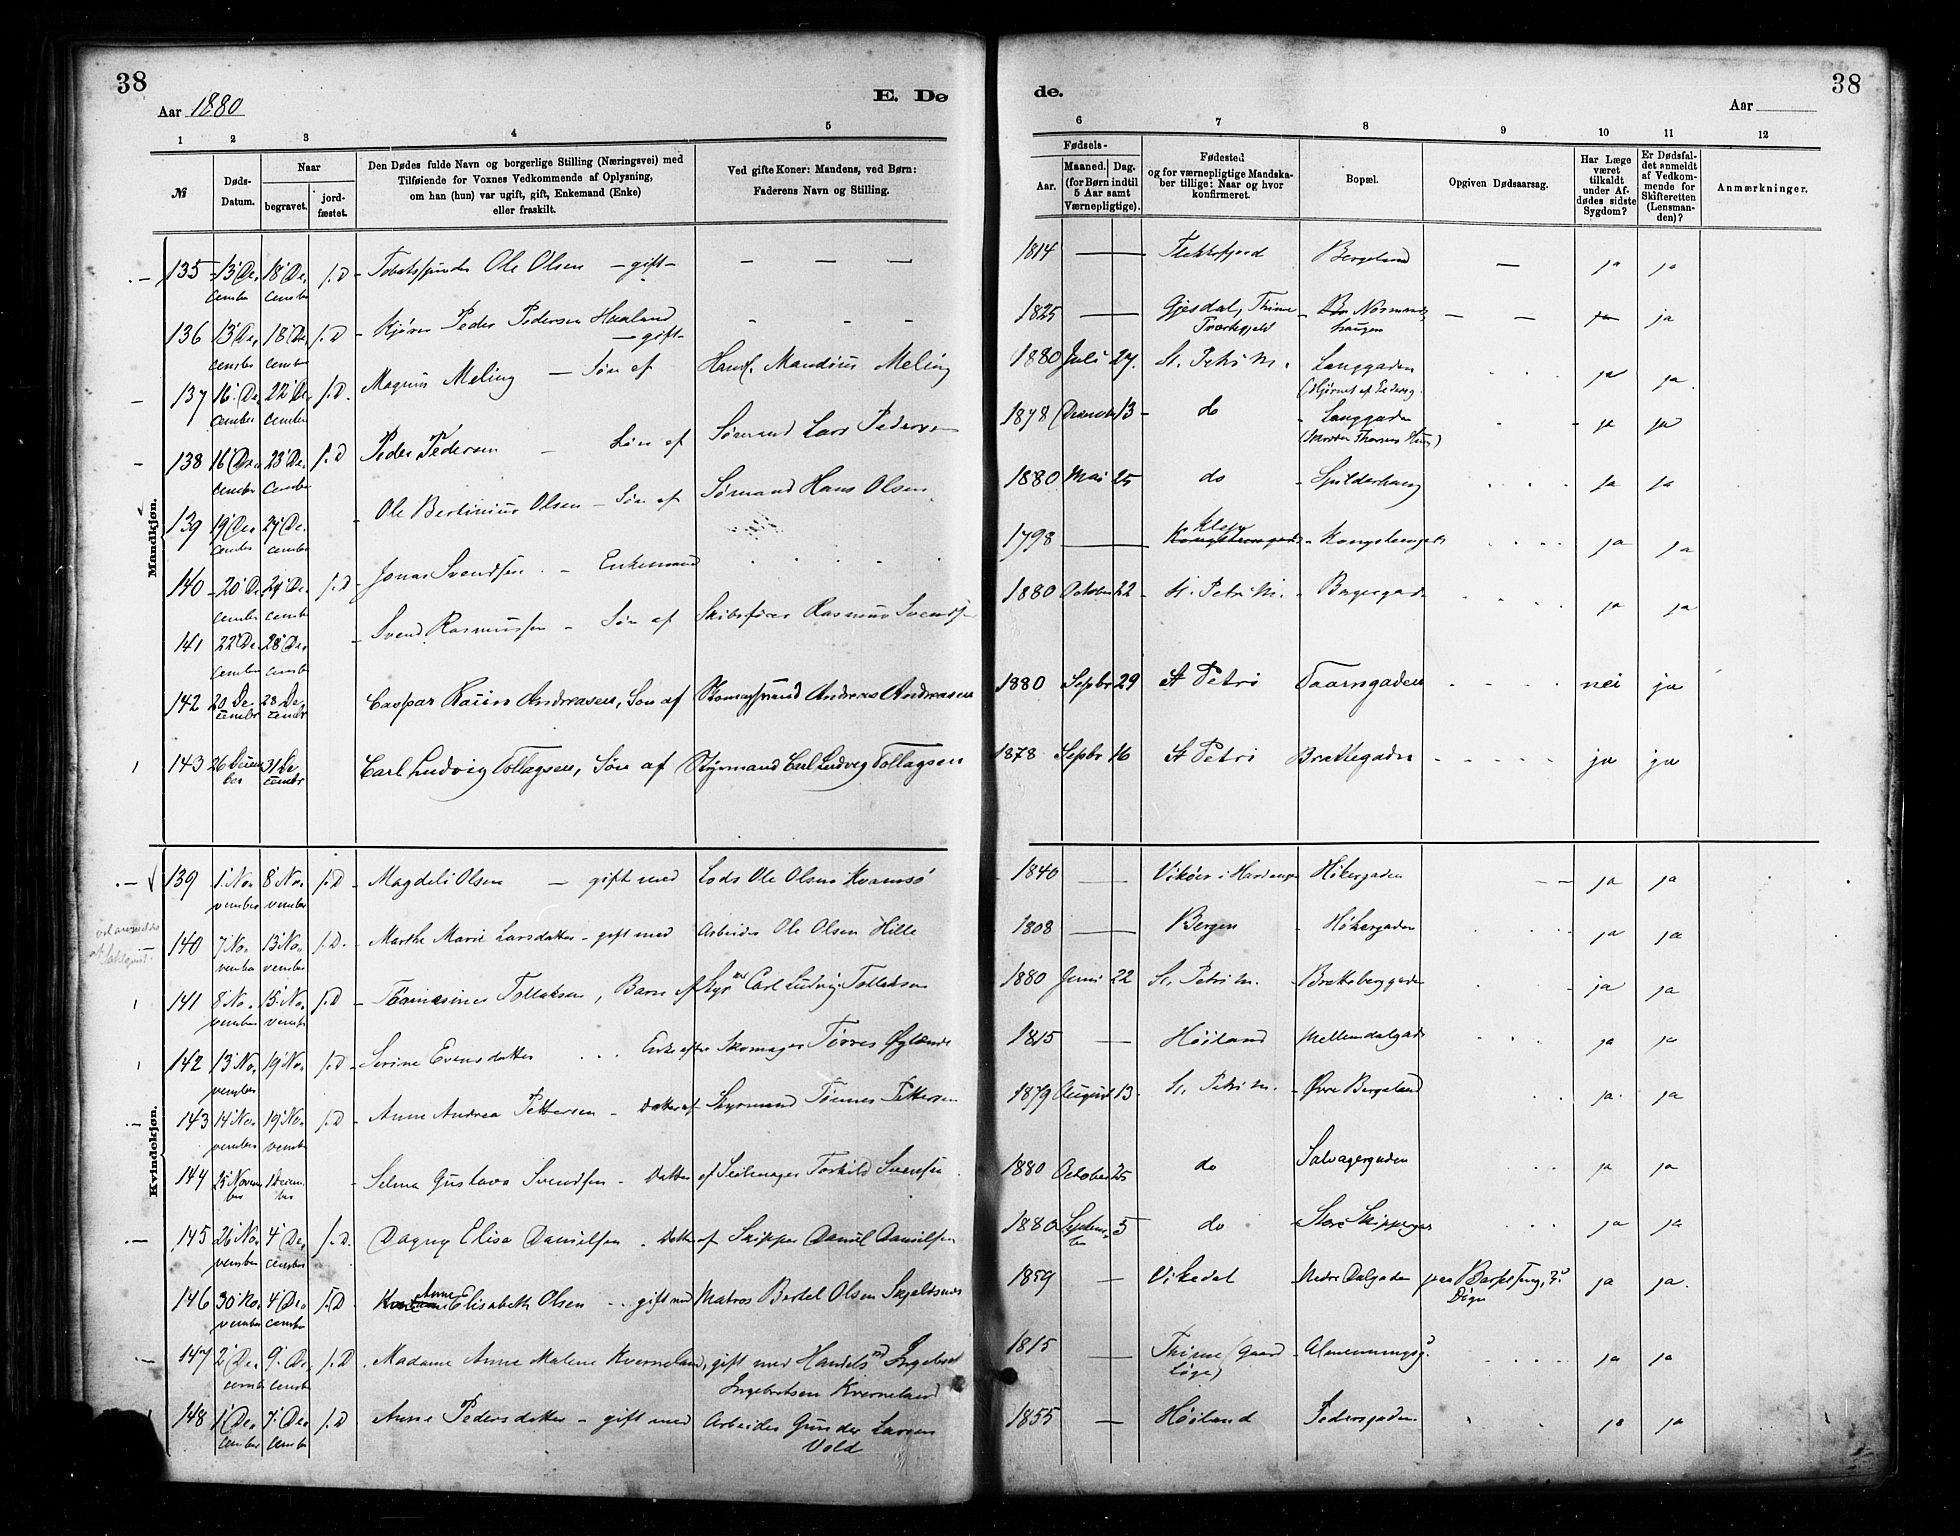 38
38
Aar 1880
E. Dø
de.
Aar
1 2 3 4 5 6 7 8 9 10 11 12
№
Døds-Datum.
Naar
begravet.
jord-fæstet.
Den Dødes fulde Navn og borgerlige Stilling (Næringsvei) med
Tilføiende for Voxnes Vedkommende af Oplysning,
om han (hun) var ugift, gift, Enkemand (Enke)
eller fraskilt.
Ved gifte Koner: Mandens, ved Børn:
Faderens Navn og Stilling.
Fødsels-
Aar.
Maaned. Dag.
(for Børn indtil
5 Aar samt
Værnepligtige).
Fødested
og for værnepligtige Mandska-
ber tillige: Naar og hvor
konfirmeret.
Bopæl.
Opgiven Dødsaarsag.
Har Læge
været
tilkaldt
under Af-
dødes sidste
Sygdom?
Er Dødsfal-
det anmeldt
af Vedkom-
mende for
Skifteretten
(Lensman-
den)?
Anmærkninger.
Mandkjøn.
135 13' December 18' December J.D Ole Olsen – gift – 1814 — Flekkefjord Bergeland — ja ja
136 13' December 18' December J.D Peder Pedersen Haaland – gift – 1825 — Gjesdal, Thime ja ja
137 16' December 22' December J.D. Magnus Meling – Søn af Handl. Mandius Meling 1880 Juli 27. St. Petri M. Langgaden ja ja.
138 16' December 23' December J.D Peder Pedersen – Søn af Sømand Lars Pedersen 1878 December 13 do Langgaden ja ja
139 19' December 27' December Ole Bertinius Olsen – Søn af Sømand Hans Olsen 1880 Mai 25 do Spilderhaug ja ja
140 20' December 29' December J.D Jonas Svendsen – Enkemand 1798 — Klep Kongsteensgade ja ja
141 22' December 28' December Svend Rasmussen – Søn af Skibsfører Rasmus Svendsen 1880 October 22 St. Petri M. Bagergade ja ja
142 20 December 28 December Caspar Andreasen, Søn af Andreas Andreasen 1880 Septbr 29 St Petri Taarngaden nei ja
143 26 December 31 December Carl Ludvig Tollagsen, Søn af Styrmand Carl Ludvig Tollagsen 1878 Septbr 16 St Petri Brattegaden ja ja
Kvindekjøn.
139 1' November 8' November J.D Magdeli Olsen – gift med Lods Ole Olsen Kvamsø 1840 — Vikøer i Hardanger Høkergaden ja ja
140 7' November 13' November J.D. Marthe Marie Larsdatter – gift med Arbeider Ole Olsen Hille 1808 — Bergen Høkergaden ja ja
141 8' November 15' November J.D Tollaksen, Barn af Styrmd Carl Ludvig Tollaksen 1880 Juni 22 St. Petri M. Bratteberggaden ja ja
142 13' November 19' November J.D Serine Evensdatter Enke efter Skomager Tørres Øglænd 1815 — Høiland Mellemdalgade ja ja
143 14' November 19' November J.D Anne Andrea Pettersen – Datter af Styrmand Tønnes Pettersen 1879 August 13. St. Petri M. Øvre Bergeland ja. ja
144 25' November 1' December Selma Gustava Svendsen – Datter af Seilmager Torkild Svensen 1880 October 25 do Salvagergaden ja ja
145 26' November 4' December J.D. Dagny Elisa Danielsen . Datter af Skipper Daniel Danielsen 1880 September 5 do Store Skippergade ja ja
146 30' November 4' December J.D Anne Elisabeth Olsen . . gift med Matros Bertel Olsen Skjeldsnes 1859 — Vikedal Nedre Dalgaden ja ja.
147 2' December 9' December J.D Madame Anne Malene Kverneland, gift med Handelsmd Ingebret Ingebretsen Kverneland 1815 — Thime (Gaard Løge) Almenningsg. ja ja
148 1' December 7' December J.D Anne Pedersdatter – gift med Arbeider Gunder Larsen Vold 1855 — Høiland Pedersgaden ja ja